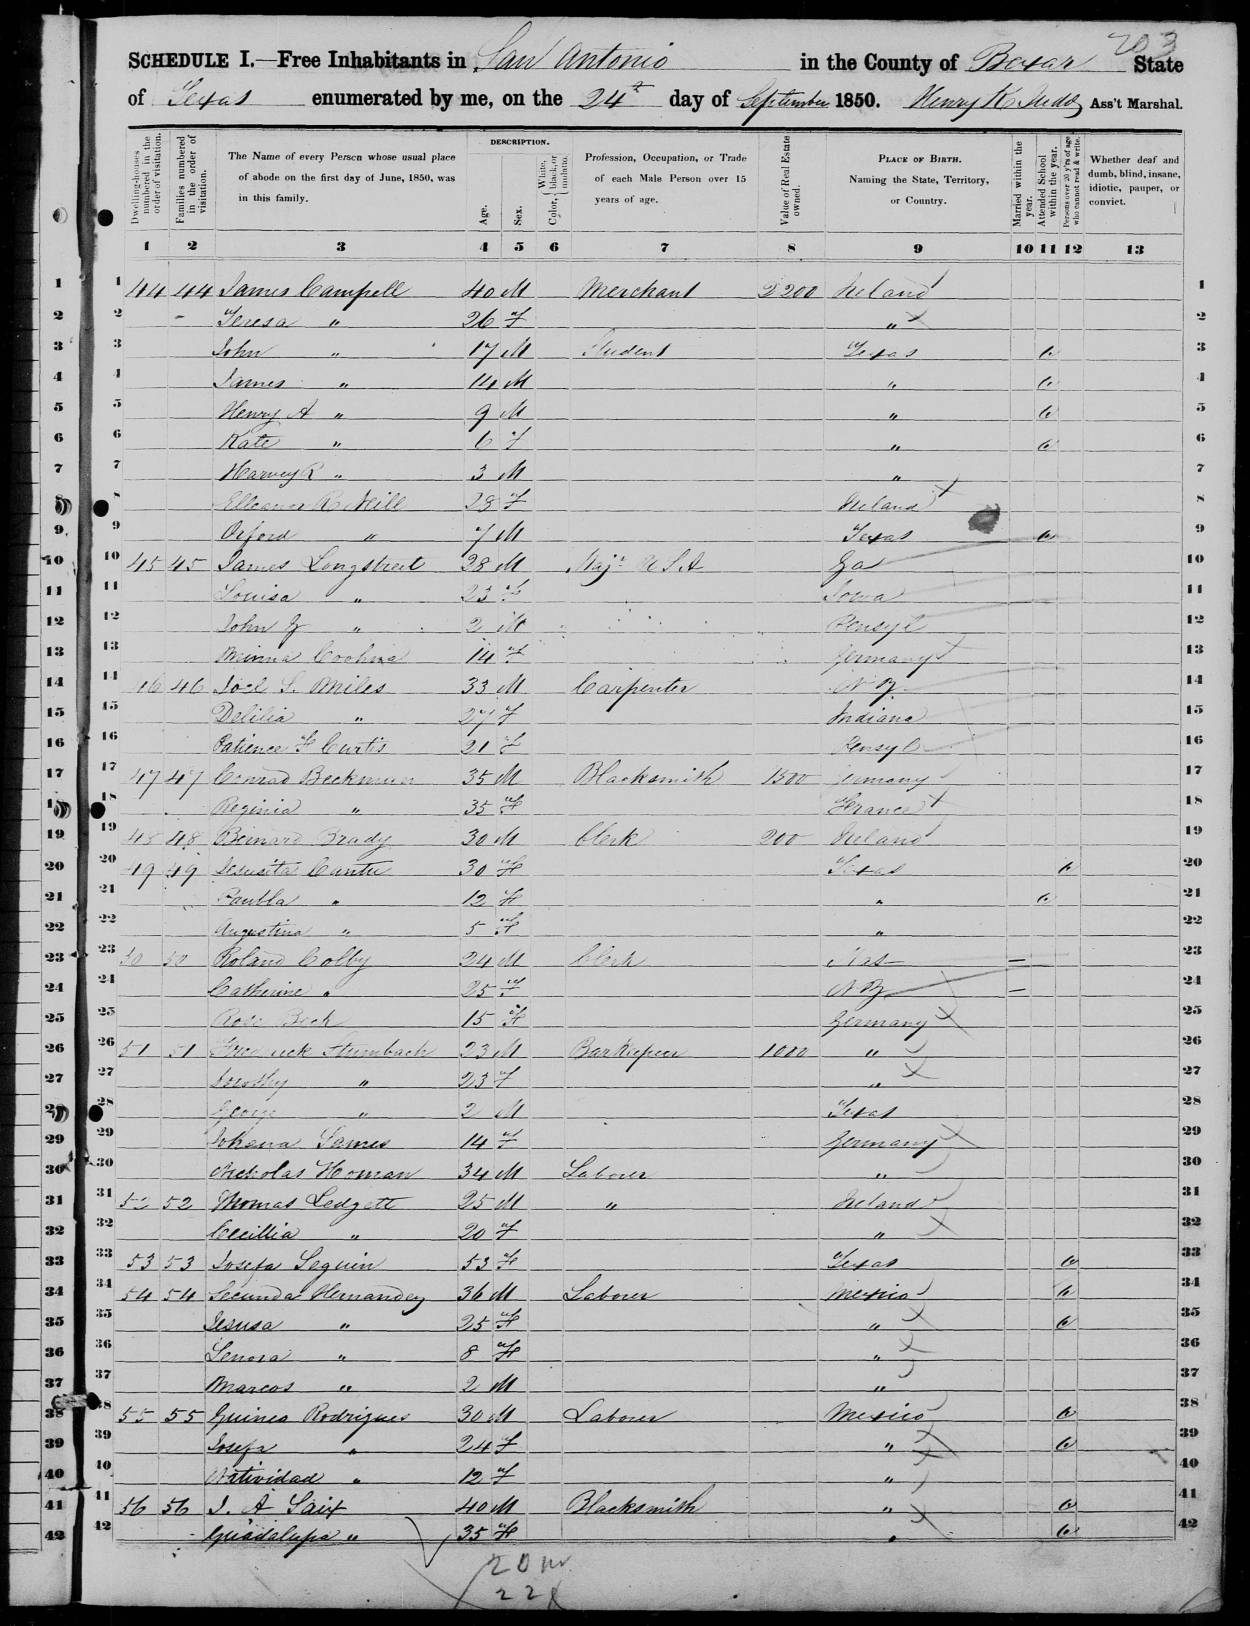 203
SCHEDULE I.—Free Inhabitants in San Antonio in the County of Bexar State
of Texas enumerated by me, on the 24th day of September 1850. Henry K Ass't Marshal.
Dwelling-houses numbered in the order of visitation.
Families numbered in the order of visitation.
The Name of every Person whose usual place of abode on the first day of June, 1850, was in this family.
DESCRIPTION.
Age.
Sex.
Color, { White, black, or mulatto.
Profession, Occupation, or Trade of each Male Person over 15 years of age.
Value of Real Estate owned.
PLACE OF BIRTH. Naming the State, Territory, or Country.
Married within the year.
Attended School within the year.
Persons over 20 y'rs of age who cannot read & write.
Whether deaf and dumb, blind, insane, idiotic, pauper, or convict.
1 2 3 4 5 6 7 8 9 10 11 12 13
1 1 44 44 James Campbell 40 M Merchant 2200 Ireland 1
2 2 Teresa " 26 F " 2
3 3 John " 17 M Student Texas 3
4 4 James " 14 M " 4
5 5 Henry A " 9 M " 5
6 6 Kate " 6 F " 6
7 7 Harvey R " 3 M " 7
8 8 Elleanor R Neill 28 F Ireland 8
9 9 Orford " 7 M Texas 9
10 10 45 45 James Longstreet 28 M Maj. U S A Ga 10
11 11 Louisa " 23 F Iowa 11
12 12 John G " 2 M Pensyl 12
13 13 Minna 14 F Germany 13
14 14 46 46 Joel S. Miles 33 M Carpenter N Y 14
15 15 Delilia " 27 F Indiana 15
16 16 Patience H Curtis 21 F Pensyl 16
17 17 47 47 Conrad 35 M Blacksmith 1500 Germany 17
18 18 Reginia " 35 F France 18
19 19 48 48 Bernard Brady 30 M Clerk 200 Ireland 19
20 20 49 49 Jesusita Cantu 30 F Texas 20
21 21 Paubla " 12 F " 21
22 22 Augustina " 5 F " 22
23 23 50 50 Roland Colby 24 M Clerk Mas — 23
24 24 Catherine " 25 F N Y — 24
25 25 Rose Beck 15 F Germany 25
26 26 51 51 Frederick 23 M Barkeeper 1000 " 26
27 27 Dorothy " 23 F " 27
28 28 George " 2 M Texas 28
29 29 Johana James 14 F Germany 29
30 30 Nicholas Homan 34 M Laborer " 30
31 31 52 52 Thomas Ledgett 25 M " Ireland 31
32 32 Cecillia " 20 F " 32
33 33 53 53 Josefa Seguin 53 F Texas 33
34 34 54 54 Secunda Hernandez 36 M Laborer Mexico 34
35 35 Jesusa " 25 F " 35
36 36 Lenora " 8 F " 36
37 37 Marcos " 2 M " 37
38 38 55 55 Rodrigues 30 M Laborer Mexico 38
39 39 Josefa " 24 F " 39
40 40 Natividad " 12 F " 40
41 41 56 56 J. A 40 M Blacksmith " 41
42 42 Guadalupa " 35 F " 42
20 m
22 f